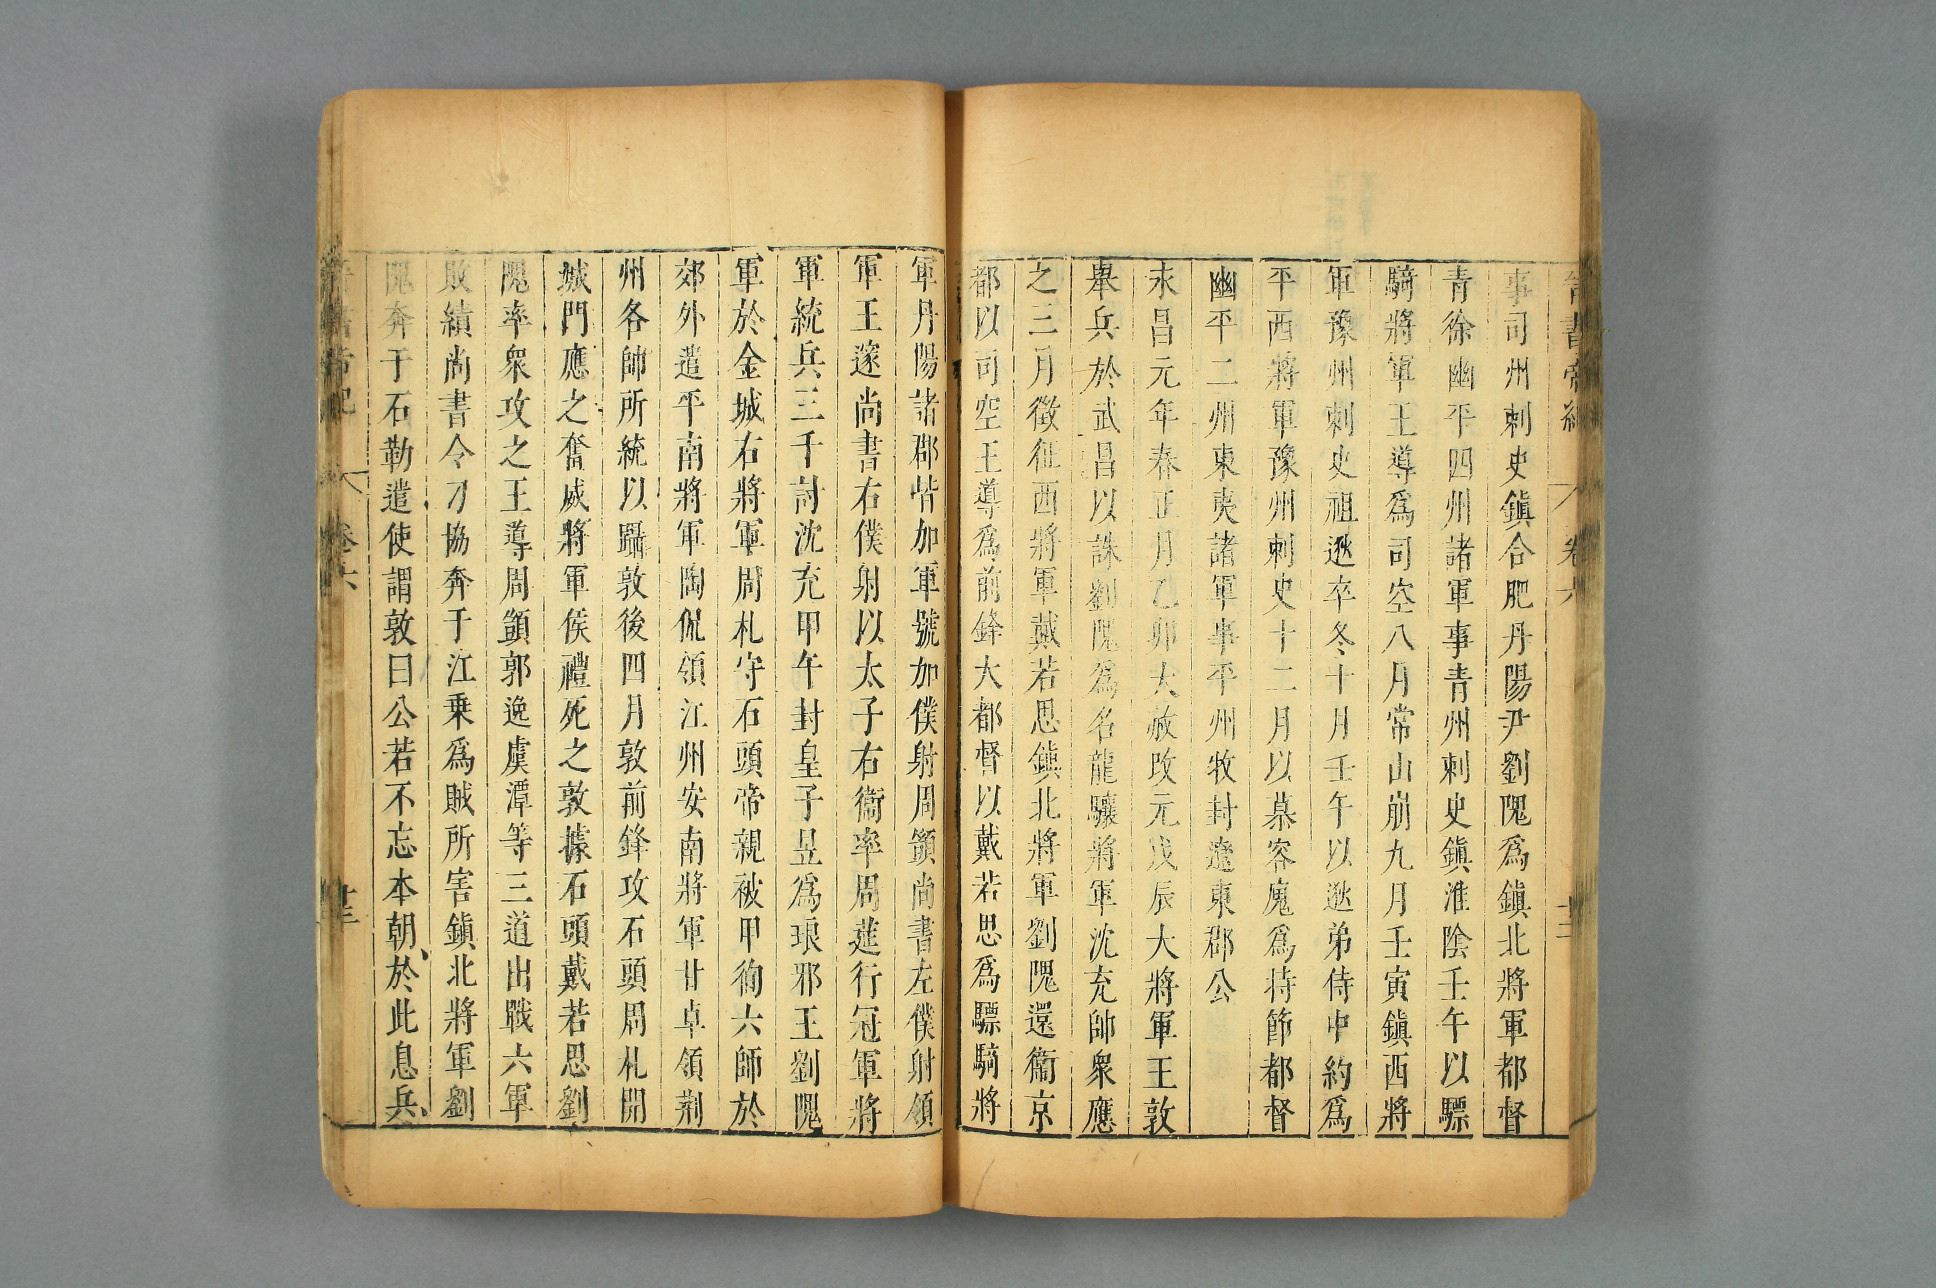 晉書帝紀 卷六 十二
事司州刺史鎭合肥丹陽尹劉隗爲鎭北將軍都督
青徐幽平四州諸軍事青州刺史鎭淮陰壬午以驃
騎將軍王導爲司空八月常山崩九月壬寅鎭西將
軍豫州刺史祖逖卒冬十月壬午以逖弟侍中約爲
平西將軍豫州刺史十二月以慕容廆爲持節都督
幽平二州東夷諸軍事平州牧封遼東郡公
永昌元年春正月乙卯大赦改元戊辰大將軍王敦
舉兵於武昌以誅劉隗爲名龍驤將軍沈充帥衆應
之三月徵征西將軍戴若思鎭北將軍劉隗還衞京
都以司空王導爲前鋒大都督以戴若思爲驃騎將
軍丹陽諸郡皆加軍號加僕射周顗尚書左僕射領
軍王邃尚書右僕射以太子右衞率周莚行冠軍將
軍統兵三千討沈充甲午封皇子昱爲琅邪王劉隗
軍於金城右將軍周札守石頭帝親被甲徇六師於
郊外遣平南將軍陶侃領江州安南將軍甘卓領荆
州各帥所統以躡敦後四月敦前鋒攻石頭周札開
城門應之奮威將軍侯禮死之敦據石頭戴若思劉
隗率衆攻之王導周顗郭逸虞潭等三道出戰六軍
敗績尚書令刁協奔于江乗爲賊所害鎭北將軍劉
隗奔于石勒遣使謂敦曰公若不忘本朝於此息兵
晉書帝紀 卷六 十三